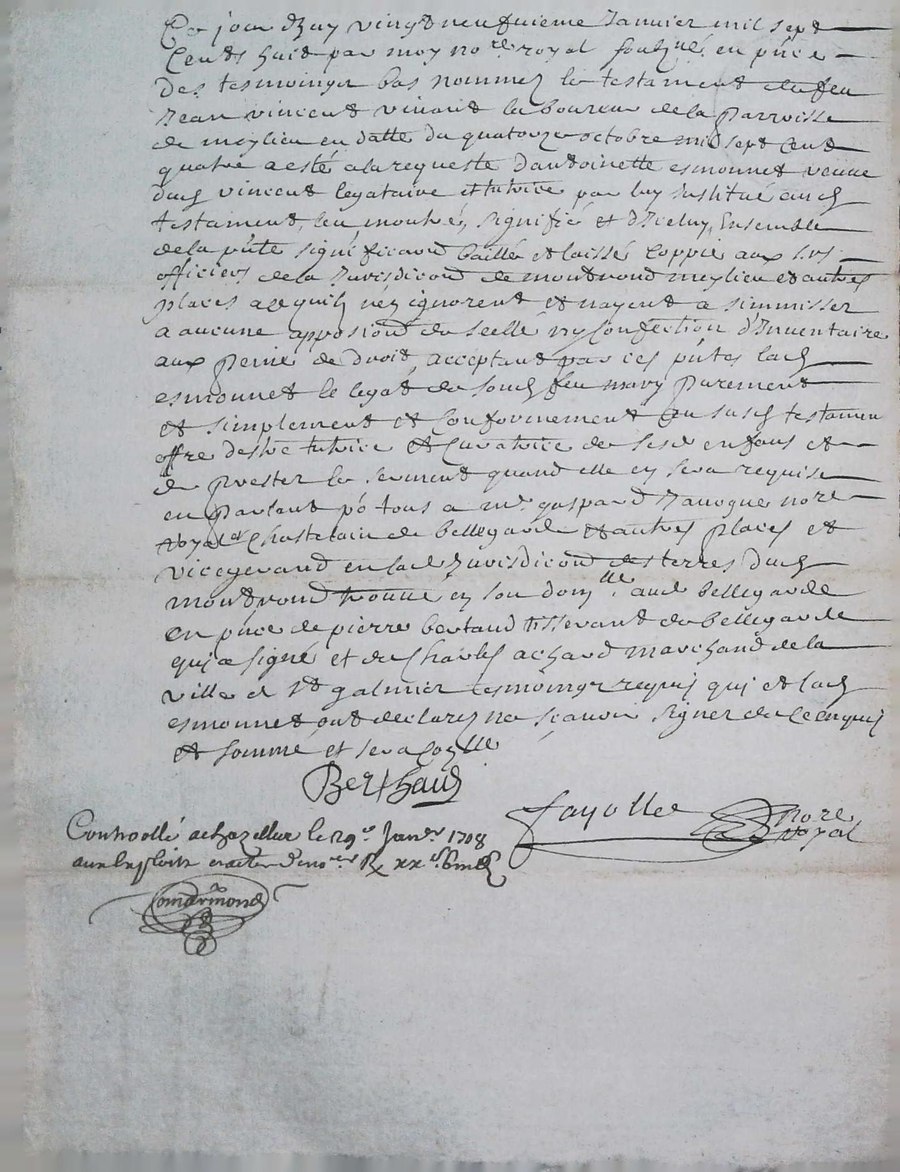 Ce jour dhuy vingt neufuieme Janvier mil sept
Cents huit par moy no.re royal soubz.né en p̃nce
des tesmoings bas nommez le testament du feu
Jean vincent vivant laboureur de la parroisse
de meylieu en datte du quatorze octobre mil sept Cent
quatre a esté a la requeste dantoinette esmonnet veuve
dud vincent legataire et tutrice par luy Institué aud
testament, leu montré, signifié et dIceluy Ensemble
de la p̃nte significaõn baillé et laissé Coppie aux srs
officiers de la Jurisdicõn de montrond meylieu et autres
places a ce quilz nez ignorent et nayent a simmisser
a aucune apposion du scellé ny Confection d'Inventaire
aux peine de droit, acceptant par ces p̃ntes lad
esmonnet le legat de soud feu mary purement
et simplement et Conformement au susd testamen
offre destre tutrice et Curatrice de sesd enfans et
de prester le serment quand elle en sera requise
en parlant po tous a mr. gaspard Janogue no.re
royal et Chastelain de bellegarde et autres places et
vicegerand en lad Jurisdicõn des terres dud
montrond trouvé en son dom.lle aud bellegarde
en p̃nce de pierre bertaud tisserant de bellegarde
qui a signé et de Charles achard marchand de la
ville de St galmier tesmoings requis qui et lad
esmonnet ont declarez ne scavoir signer de ce enquis
et sommé et sera
Berthaud
fayolle no.re royal
Controollé a chazelles le 29.e Janvr 1708